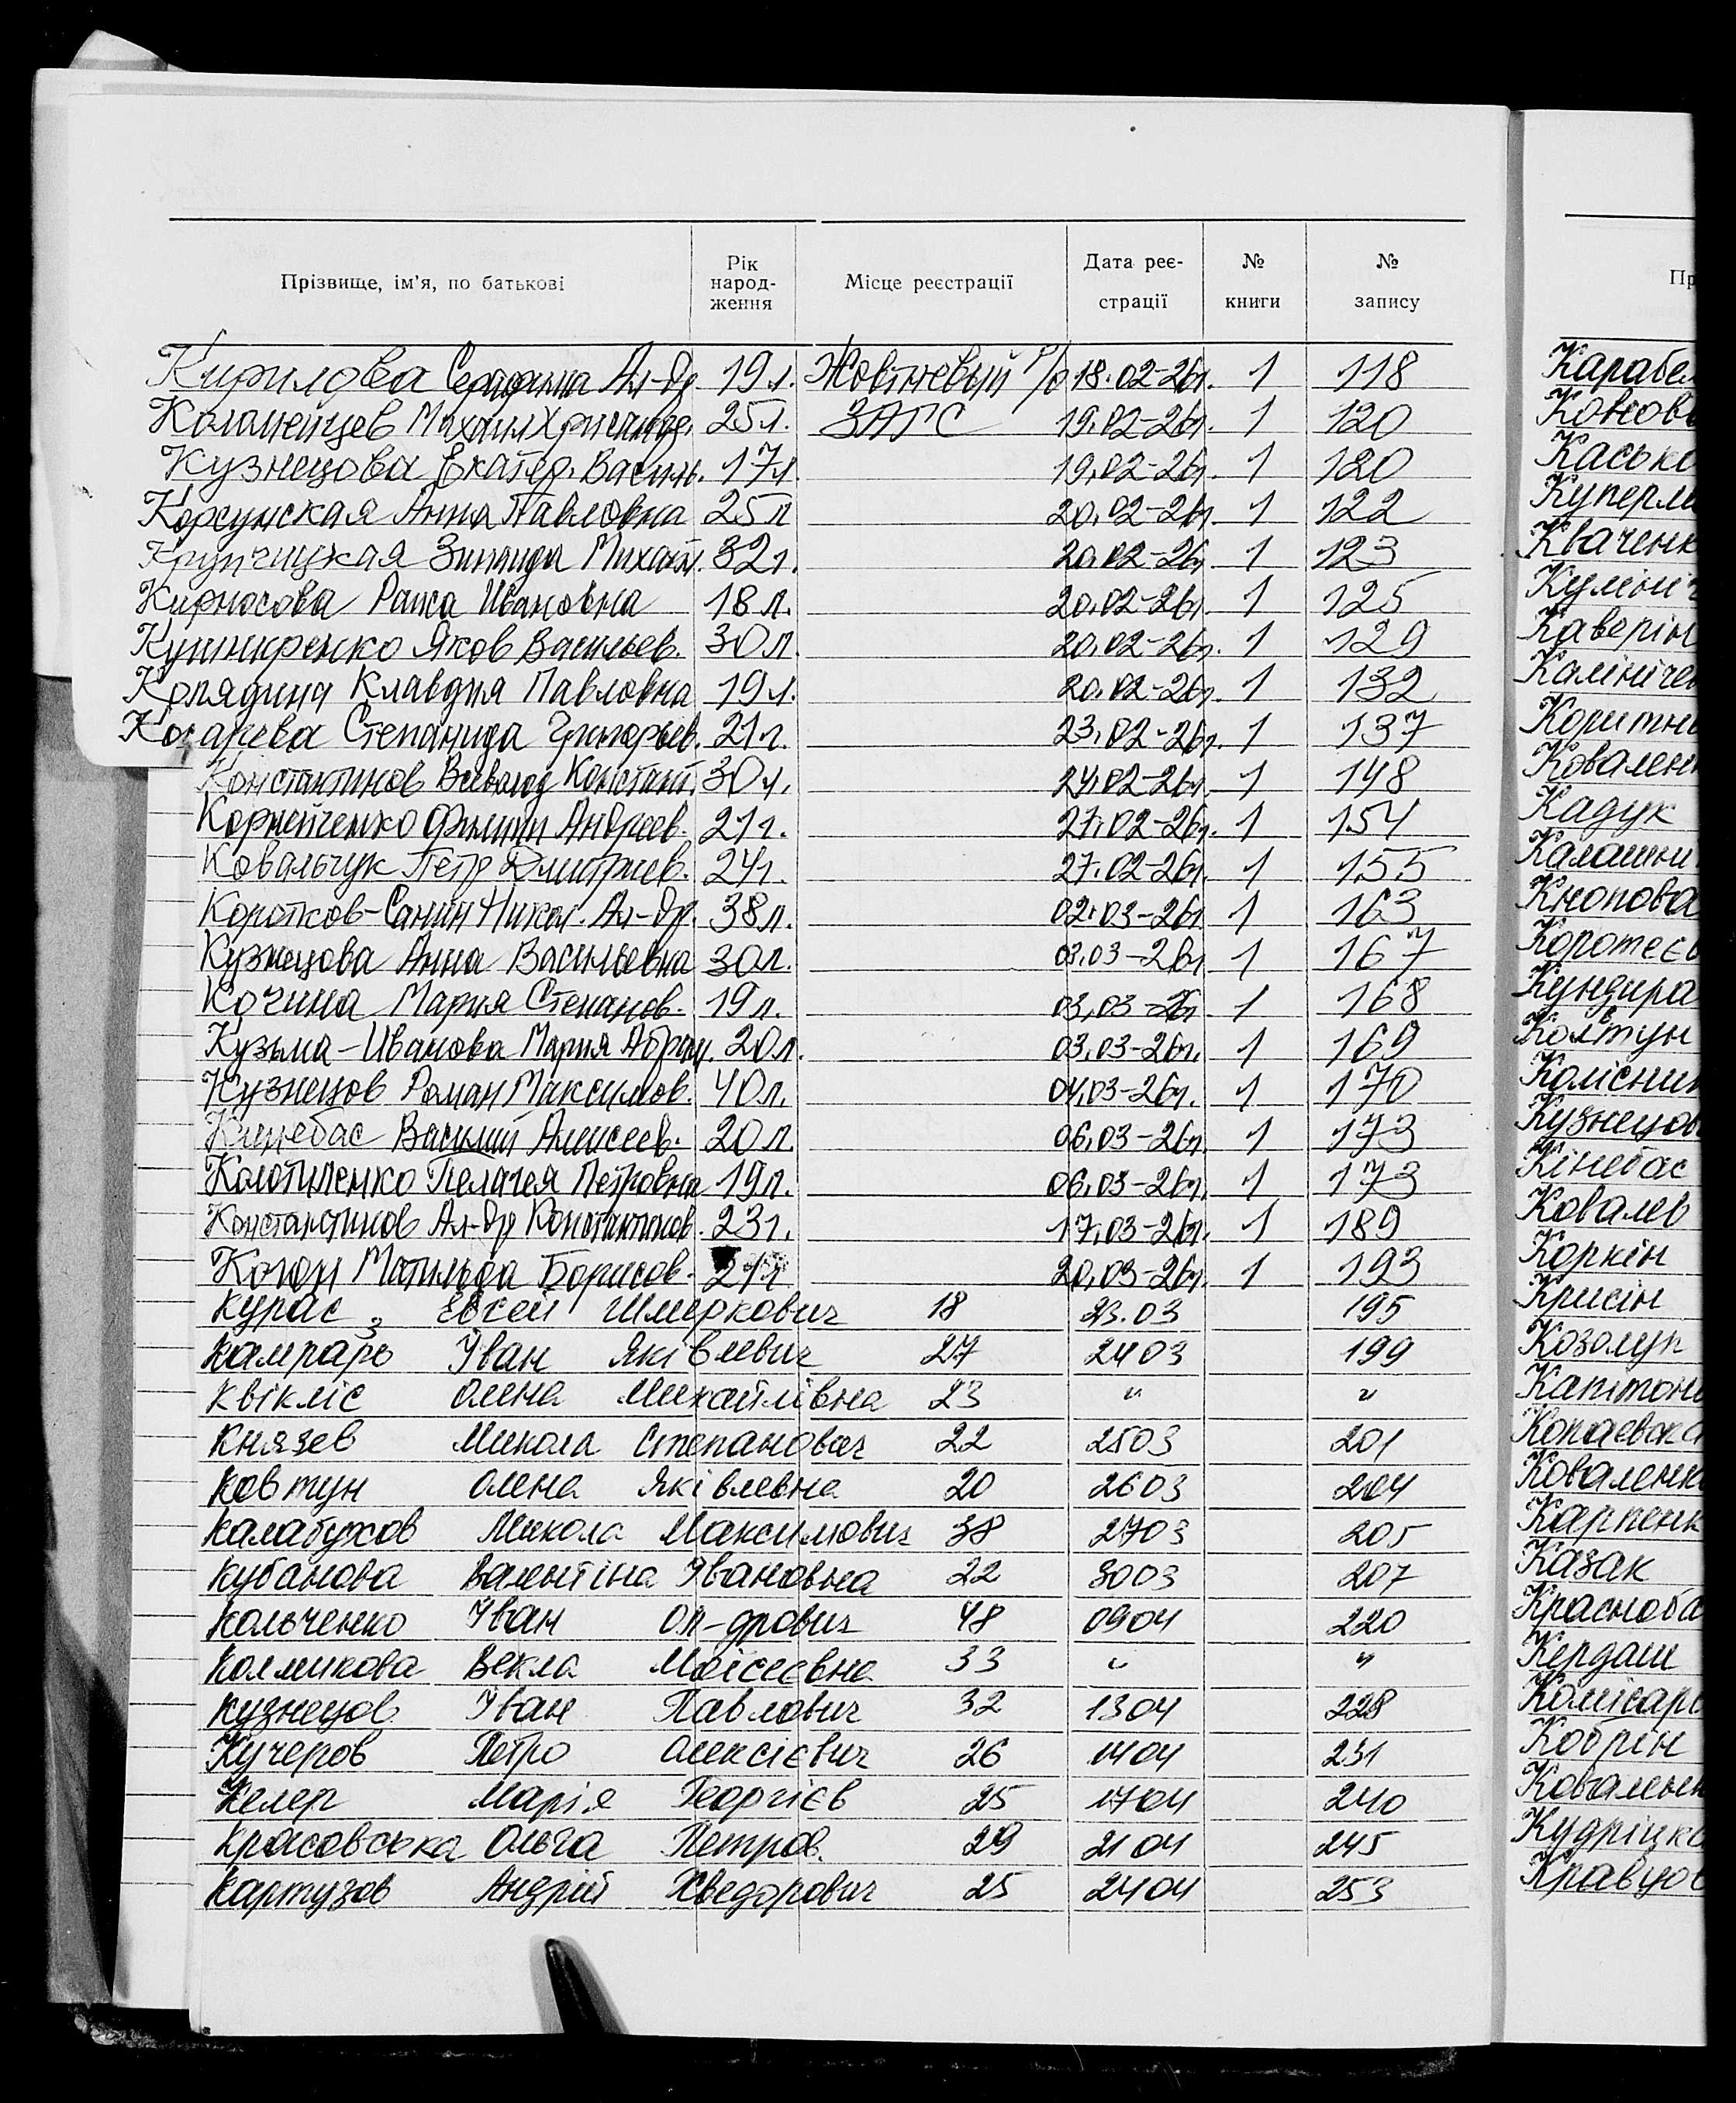 Прізвище, ім'я, по батькові Рік народ-ження Місце реєстрації Дата реє-страції № книги № запису
Кирилова Серафима Ал-др. 19 л. Жовтневый р/о 18.02-26г. 1 118
Коломейцев Михаил 25 л. ЗАГС 19.02-26г. 1 120
Кузнецова Екатер. Василь. 17 л 19.02-26г. 1 120
Корсунская Анна Павловна 25 л 20.02-26г. 1 122
Крупчицкая Зинаида Михайл. 32 г. 20.02-26г. 1 123
Кирносова Раиса Ивановна 18 л. 20.02-26г. 1 125
Кушниренко Яков Васильев. 30 л. 20.02-26г. 1 129
Копядина Клавдия Павловна 19 л. 20.02-26г. 1 132
Степанида Григорьев. 21 г. 23.02-26г. 1 137
Константинов Всеволод Констант. 30 л. 24.02-26г. 1 148
Корнейченко Филипп Андреев. 21 г. 27.02-26г. 1 154
Ковальчук Петр Дмитриев. 24 г. 27.02-26г. 1 155
Коротков-Санин Никол. Ал-др. 38 л. 02.03-26г. 1 163
Кузнецова Анна Васильевна 30 л. 03.03-26г. 1 167
Кочина Мария Степанов. 19 л. 03.03-26г. 1 168
Кузьма-Иванова Мария Абрам. 20 л. 03.03-26г. 1 169
Кузнецов Роман Максимов. 40 л. 04.03-26г. 1 170
Кинебас Василий Алексеев. 20 л. 06.03-26г. 1 173
Колотиленко Пелагея Петровна 19 л. 06.03-26г. 1 173
Константинов Ал-др Константинов. 23 г. 17.03-26г. 1 189
Коган Матильда Борисов. 21 г. 20.03-26г. 1 193
Курас Евсей Шмеркович 18 23.03 195
Камрарь Іван Яківлевич 27 2403 199
Квікліс Олена Михайлівна 23 " "
Князев Микола Степанович 22 2503 201
Ковтун Олена Яківлевна 20 2603 204
Калабухов Микола Максимович 38 2703 205
Кубанова Валентіна Івановна 22 3003 207
Кольченко Іван Ол-дрович 48 0904 220
Колмикова Векла Моісеєвна 33 " "
Кузнецов Іван Павлович 32 1304 228
Кучеров Петро Олексієвич 26 1404 231
Келер Марія Георгієв 25 1704 240
Красовська Ольга Петров. 29 2104 245
Картузов Андрій Хведорович 25 2404 253
Пр
Карабел
Касько
Куперм
Кваченк
Кулініч
Каверін
Калінічен
Коритн
Ковален
Кадук
Калашни
Кнопова
Коротеє
Кундира
Колтун
Колісник
Кузнецов
Кінебас
Ковалев
Коркін
Крисін
Козолуп
Капітон
Копаевска
Коваленк
Карпенк
Казак
Красноба
Кердаш
Комісар
Кобрін
Ковален
Кудріцка
Кравцов